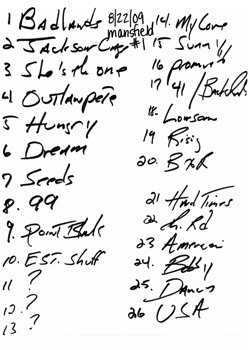 1 Badlands
8/22/09
mansfield
#1
2 Jackson Cage
3 She's the one
4 Outlaw Pete
5 Hungry
6 Dream
7 Seeds
8. 99
9. Point Blank
10. E ST. Shuff
11 ?
12. ?
13 ?
14. My Love
15 Sunny
16 promis
17 41 /
18. Lonesom
19 Rising
20. BTR
21 Hard Times
22 Th. Rd
23 American
24. Bobby
25. Dancin
26 USA